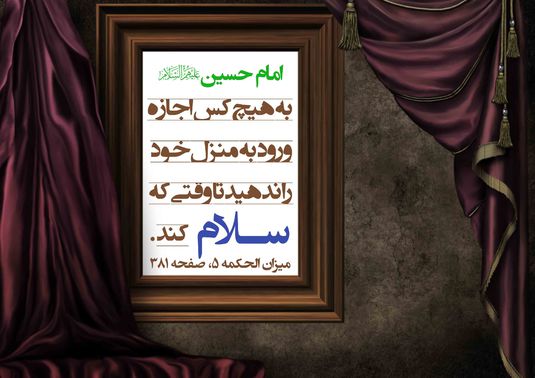 امام حسین علیه‌السلام
به هیچ کس اجازه
ورود به منزل خود
را ندهید تا وقتی که
سلام کند.
میزان الحکمه ۵، صفحه ۳۸۱